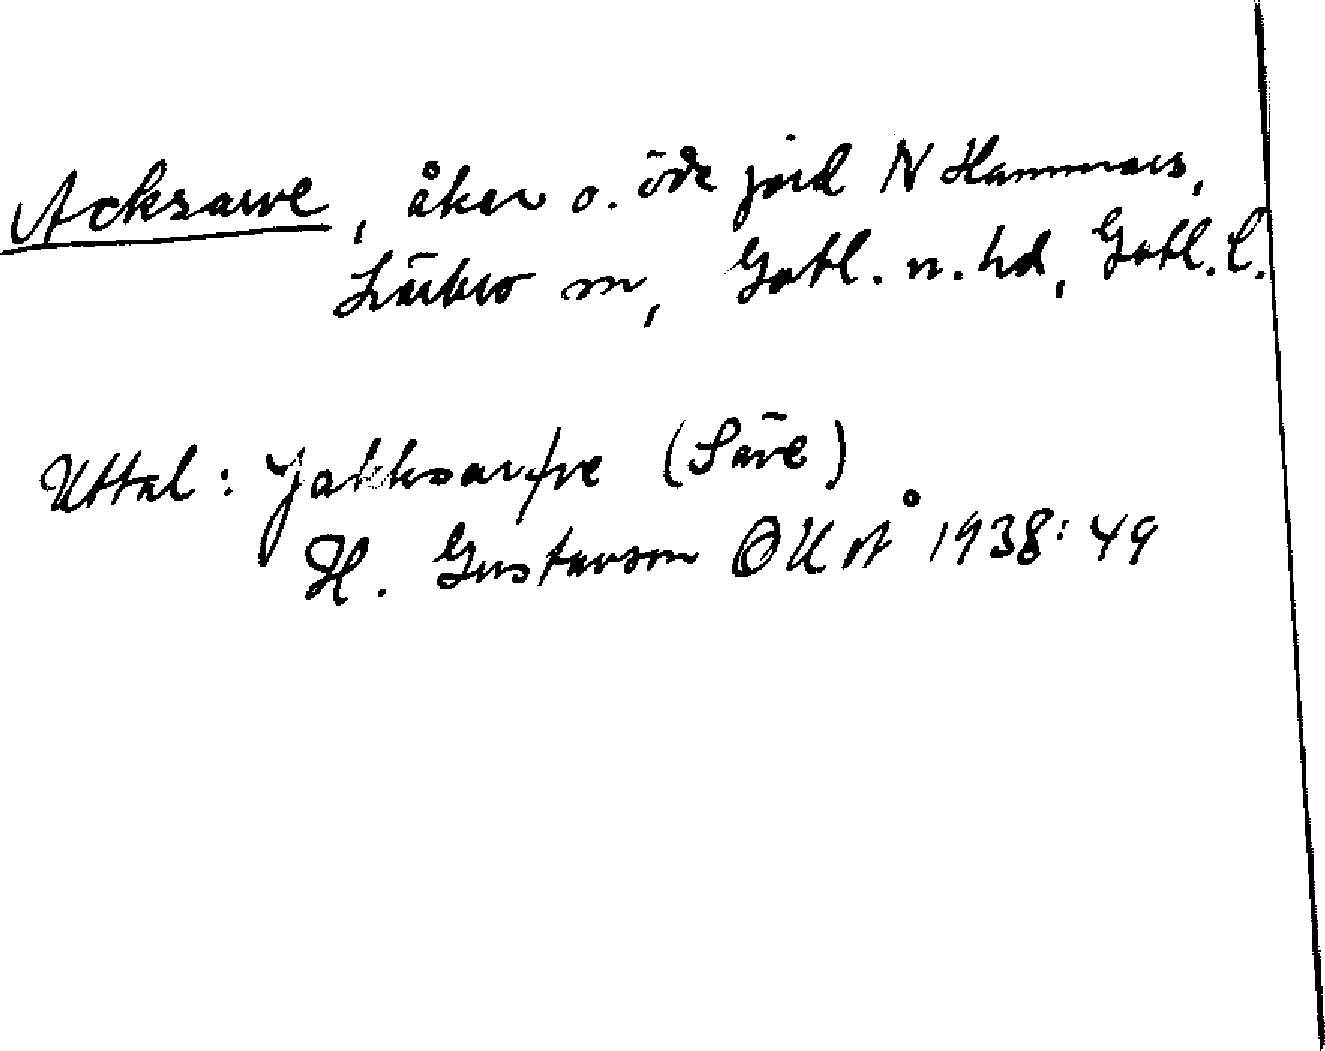 Acksarve, åker o. öde jord N Hammars,
Lärbro sn, Gotl. n. hd, Gotl. l.
Uttal: Jakksarfve (Säve)
H. Gustavson OUÅ 1938: 49